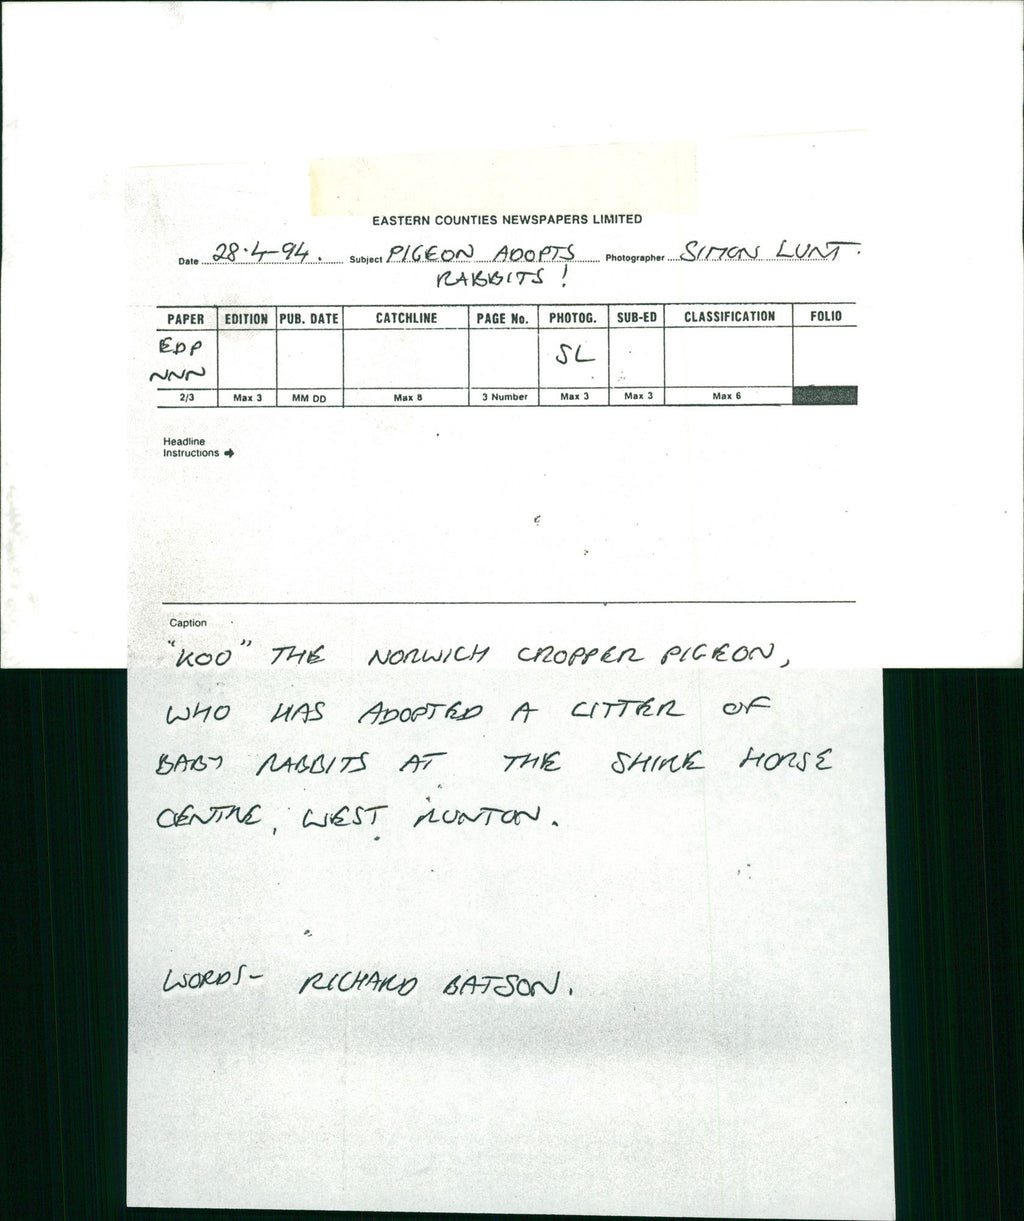 EASTERN COUNTIES NEWSPAPERS LIMITED
Date 28.4-94. Subject PIGEON ADOPTS Photographer SIMON LUNT.
RABBITS!
PAPER EDITION PUB. DATE CATCHLINE PAGE No. PHOTOG. SUB-ED CLASSIFICATION FOLIO
EDP SL
NNN
2/3 Max 3 MM DD Max 8 3 Number Max 3 Max 3 Max 6
Headline
Instructions ➔
Caption
"KOO" THE NORWICH CROPPER PIGEON,
WHO HAS ADOPTED A LITTER OF
BABY RABBITS AT THE SHIRE HORSE
CENTRE, WEST RUNTON.
WORDS- RICHARD BATSON.